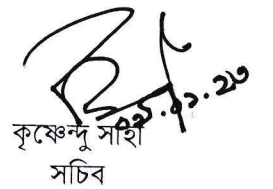 ০১.০১.২৩
কৃষ্ণেন্দু সাহা
সচিব